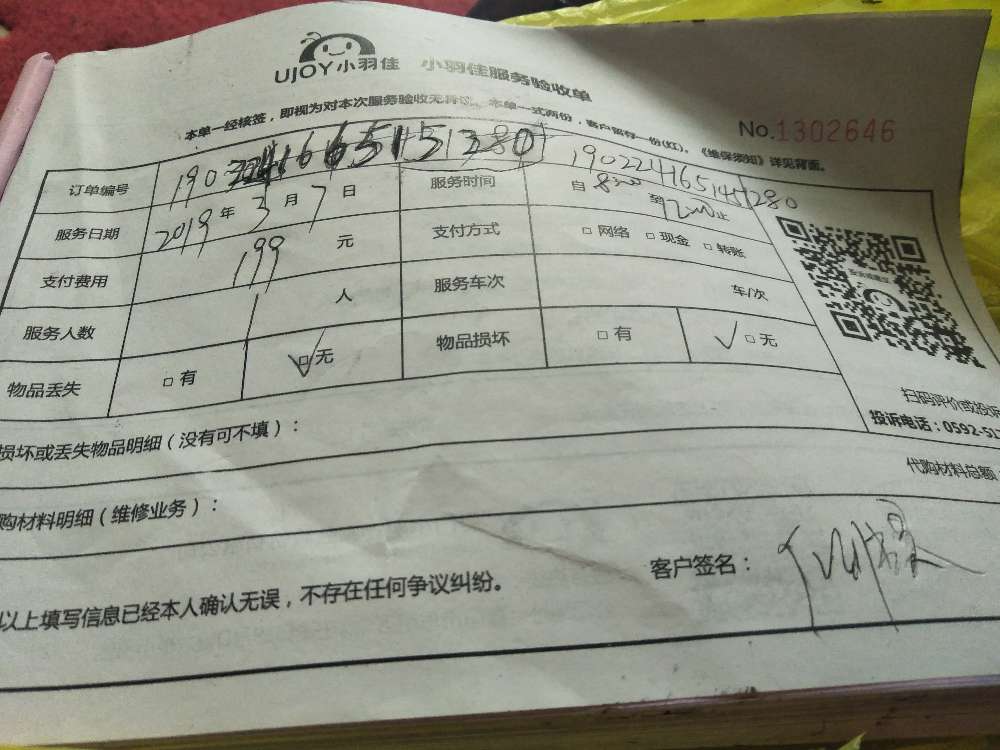 UJOY小羽佳 小羽佳服务验收单
本单一经核签，即视为对本次服务验收无异议。本单一式两份，客户留存一份(红)。《维保须知》详见背面。
No.1302646
订单编号 190224165145280
服务日期 2019年3月7日 服务时间 自8:00至12:00止
支付费用 199元 支付方式 □网络 □现金 □转账
服务人数 1人 服务车次 车/次
物品丢失 □有 ✓□无 物品损坏 □有 ✓□无
扫码评价或投诉
投诉电话：0592-51
损坏或丢失物品明细（没有可不填）：
代购材料总额：
购材料明细（维修业务）：
客户签名：
以上填写信息已经本人确认无误，不存在任何争议纠纷。